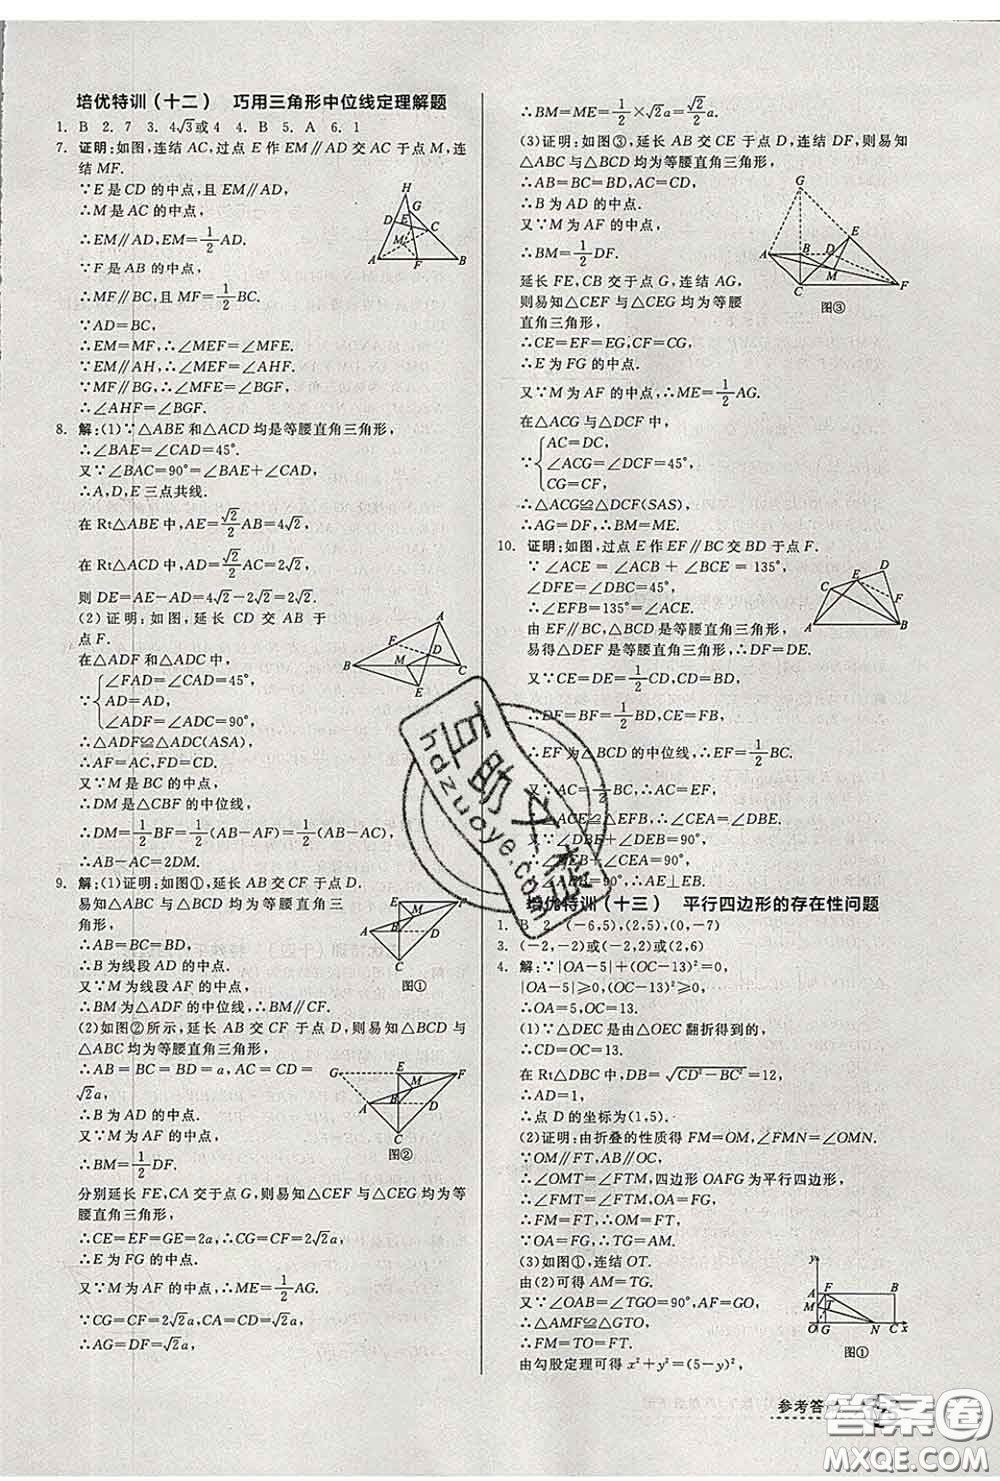 培优特训(十二)　巧用三角形中位线定理解题
1. B 2. 7 3. 4√3或4 4. B 5. A 6. 1
7. 证明:如图,连结 AC,过点 E 作 EM∥AD 交 AC 于点 M,连
结 MF.
∵E 是 CD 的中点,且 EM∥AD,
∴M 是 AC 的中点,
∴EM∥AD,EM=1/2AD.
∵F 是 AB 的中点,
∴MF∥BC,且 MF=1/2BC.
∵AD=BC,
∴EM=MF,∴∠MEF=∠MFE.
∵EM∥AH,∴∠MEF=∠AHF.
∵MF∥BG,∴∠MFE=∠BGF.
∴∠AHF=∠BGF.
H
G
D
E
C
M
A
F
B
8. 解:(1)∵△ABE和△ACD均是等腰直角三角形,
∴∠BAE=∠CAD=45°.
又∵∠BAC=90°=∠BAE+∠CAD,
∴A,D,E三点共线.
在 Rt△ABE 中,AE=√2/2AB=4√2,
在 Rt△ACD 中,AD=√2/2AC=2√2,
则 DE=AE-AD=4√2-2√2=2√2.
(2)证明:如图,延长 CD 交 AB 于
点F.
在△ADF 和△ADC 中,
∵{∠FAD=∠CAD=45°,
AD=AD,
∠ADF=∠ADC=90°,
∴△ADF≌△ADC(ASA),
∴AF=AC,FD=CD.
又∵M 是 BC 的中点,
∴DM是△CBF 的中位线,
∴DM=1/2BF=1/2(AB-AF)=1/2(AB-AC),
∴AB-AC=2DM.
A
F
D
B
M
C
E
9. 解:(1)证明:如图①,延长 AB 交 CF 于点 D.
则易知△ABC 与△BCD 均为等腰直角三
角形,
∴AB=BC=BD,
∴B 为线段 AD 的中点.
又∵M为线段 AF 的中点,
∴BM为△ADF的中位线,∴BM∥CF.
图①
(2)如图②所示,延长 AB 交 CF 于点 D,则易知△BCD 与
△ABC 为等腰直角三角形,
∴AB=BC=BD=a,AC=CD=
√2a,
∴B 为 AD 的中点.
又∵M 为 AF 的中点,
∴BM=1/2DF.
G
E
F
M
A
B
D
C
图②
分别延长 FE,CA 交于点 G,则易知△CEF 与△CEG 均为等
腰直角三角形,
∴CE=EF=GE=2a,∴CG=CF=2√2a,
∴E 为 FG 的中点.
又∵M 为 AF 的中点,∴ME=1/2AG.
∵CG=CF=2√2a,CA=CD=√2a,
∴AG=DF=√2a,
∴BM=ME=1/2×√2a=√2/2a.
(3)证明:如图③,延长 AB 交 CE 于点 D,连结 DF,则易知
△ABC 与△BCD 均为等腰直角三角形,
∴AB=BC=BD,AC=CD,
∴B 为 AD 的中点.
又∵M 为 AF 的中点,
∴BM=1/2DF.
延长 FE,CB 交于点 G,连结 AG,
则易知△CEF 与△CEG 均为等腰
直角三角形,
∴CE=EF=EG,CF=CG,
∴E 为 FG 的中点.
又∵M 为 AF 的中点,∴ME=1/2AG.
G
E
A
B
D
M
C
F
图③
在△ACG 与△DCF 中,
∵{AC=DC,
∠ACG=∠DCF=45°,
CG=CF,
∴△ACG≌△DCF(SAS),
∴AG=DF,∴BM=ME.
10. 证明:如图,过点 E 作 EF∥BC 交 BD 于点 F.
∵∠ACE=∠ACB+∠BCE=135°,
∠DFE=∠DBC=45°,
∴∠EFB=135°=∠ACE.
由 EF∥BC,△DBC 是等腰直角三角形,
易得△DEF 是等腰三角形,∴DF=DE.
又∵CE=DE=1/2CD,CD=BD,
∴DF=BF=1/2BD,CE=FB,
∴EF为△BCD 的中位线,∴EF=1/2BC.
又∵AC=1/2BC,∴AC=EF,
∴△ACE≌△EFB,∴∠CEA=∠DBE.
又∵∠DBE+∠DEB=90°,
∴∠DEB+∠CEA=90°,
∴∠AEB=90°,∴AE⊥EB.
D
E
C
F
A
B
培优特训(十三)　平行四边形的存在性问题
1. B 2. (-6,5),(2,5),(0,-7)
3. (-2,-2)或(-2,2)或(2,6)
4. 解:∵|OA-5|+(OC-13)²=0,
|OA-5|≥0,(OC-13)²≥0,
∴OA=5,OC=13.
(1)∵△DEC是由△OEC 翻折得到的,
∴CD=CO=13.
在 Rt△DBC 中,DB=√(CD²-BC²)=12,
∴AD=1,
∴点 D 的坐标为(1,5).
(2)证明:由折叠的性质得 FM=OM,∠FMN=∠OMN.
∵OM∥FT,AF∥OG,
∴∠OMT=∠FTM,四边形 OAFG 为平行四边形,
∴∠FMT=∠FTM,OA=FG,
∴FM=FT,∴OM=FT,
∵OA=FG,∴TG=AM.
(3)如图①,连结 OT.
由(2)可得 AM=TG.
又∵∠OAB=∠TGO=90°,AF=GO,
∴△FAM≌△GTO,
∴FM=TO=FT.
由勾股定理可得 x²+y²=(5-y)²,
y
A
F
B
M
T
O
G
N
C
x
图①
参考答
互助文档
hdzuoye.com
答案圈
MXQE.COM